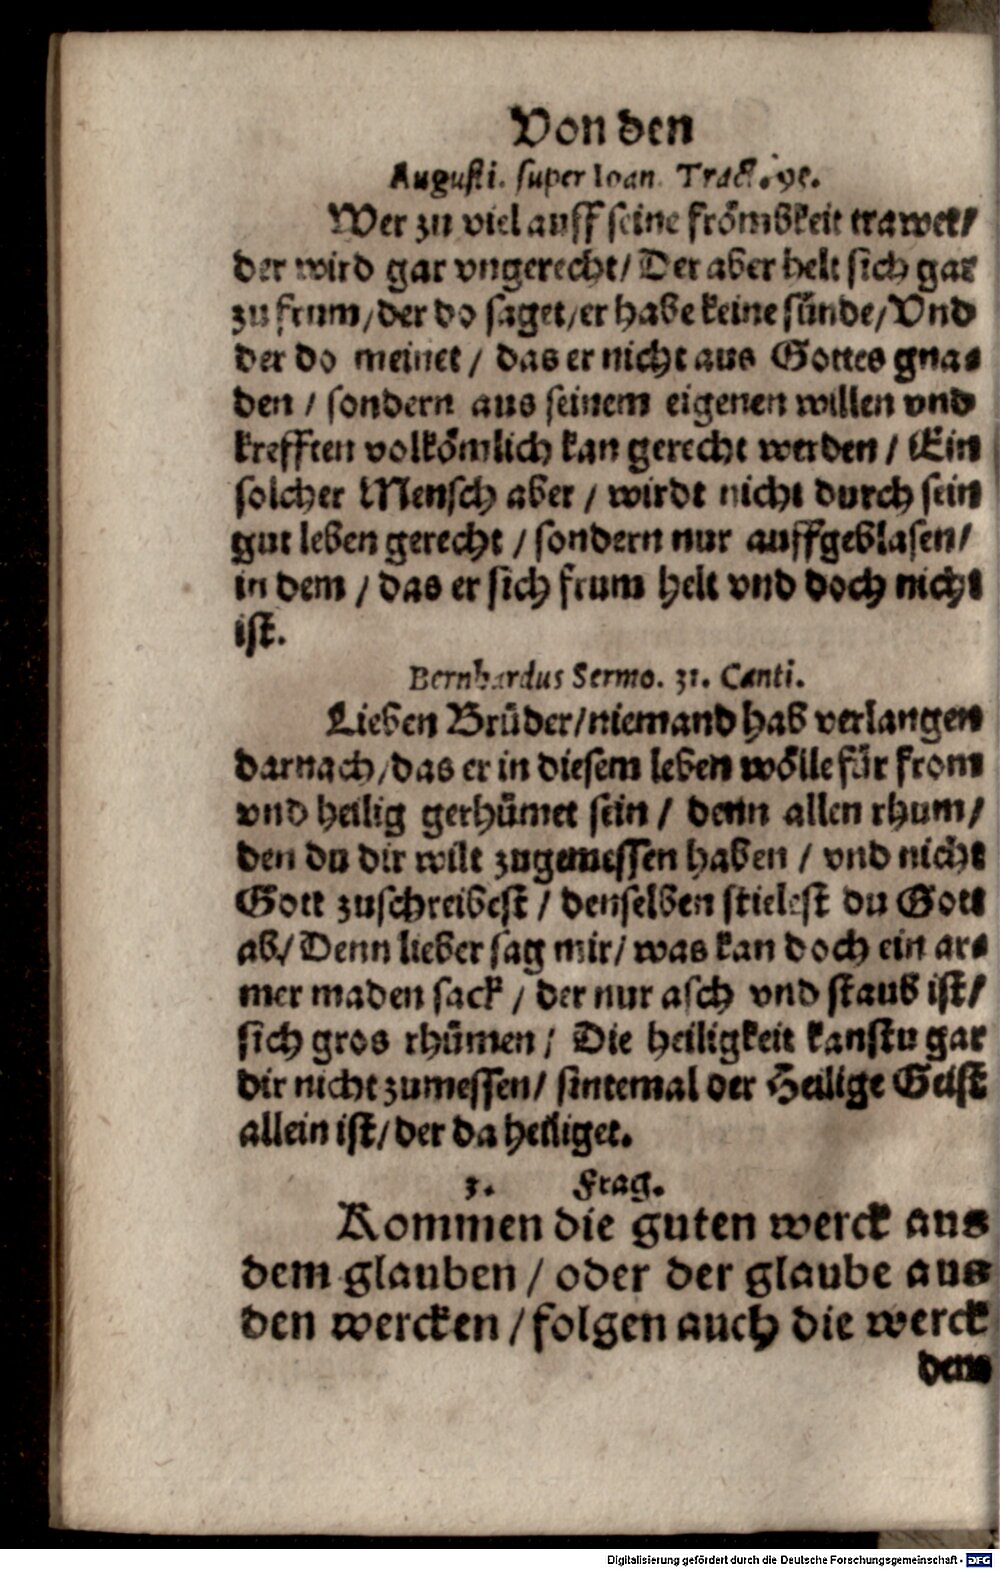 Von den
Augusti. super Ioan. Tract.
Wer zu viel auff seine frömbkeit trawet/
der wird gar vngerecht/ Der aber helt sich gar
zu frum/ der do saget/ er habe keine sünde/ Vnd
der do meinet / das er nicht aus Gottes gna⸗
den / sondern aus seinem eigenen willen vnd
krefften volkömlich kan gerecht werden / Ein
solcher Mensch aber / wirdt nicht durch sein
gut leben gerecht / sondern nur auffgeblasen/
in dem / das er sich frum helt vnd doch nicht
ist.
Bernhardus Sermo. 31. Canti.
Lieben Brüder/ niemand hab verlangen
darnach/ das er in diesem leben wölle für from
vnd heilig gerhümet sein / denn allen rhum/
den du dir wilt zugemessen haben / vnd nicht
Gott zuschreibest / denselben stielest du Gott
ab/ Denn lieber sag mir/ was kan doch ein ar⸗
mer maden sack / der nur asch vnd staub ist/
sich gros rhümen / Die heiligkeit kanstu gar
dir nicht zumessen/ sintemal der Heilige Geist
allein ist/ der da heiliget.
3. Frag.
Kommen die guten werck aus
dem glauben / oder der glaube aus
den wercken / folgen auch die werck
dem
Digitalisierung gefördert durch die Deutsche Forschungsgemeinschaft - DFG